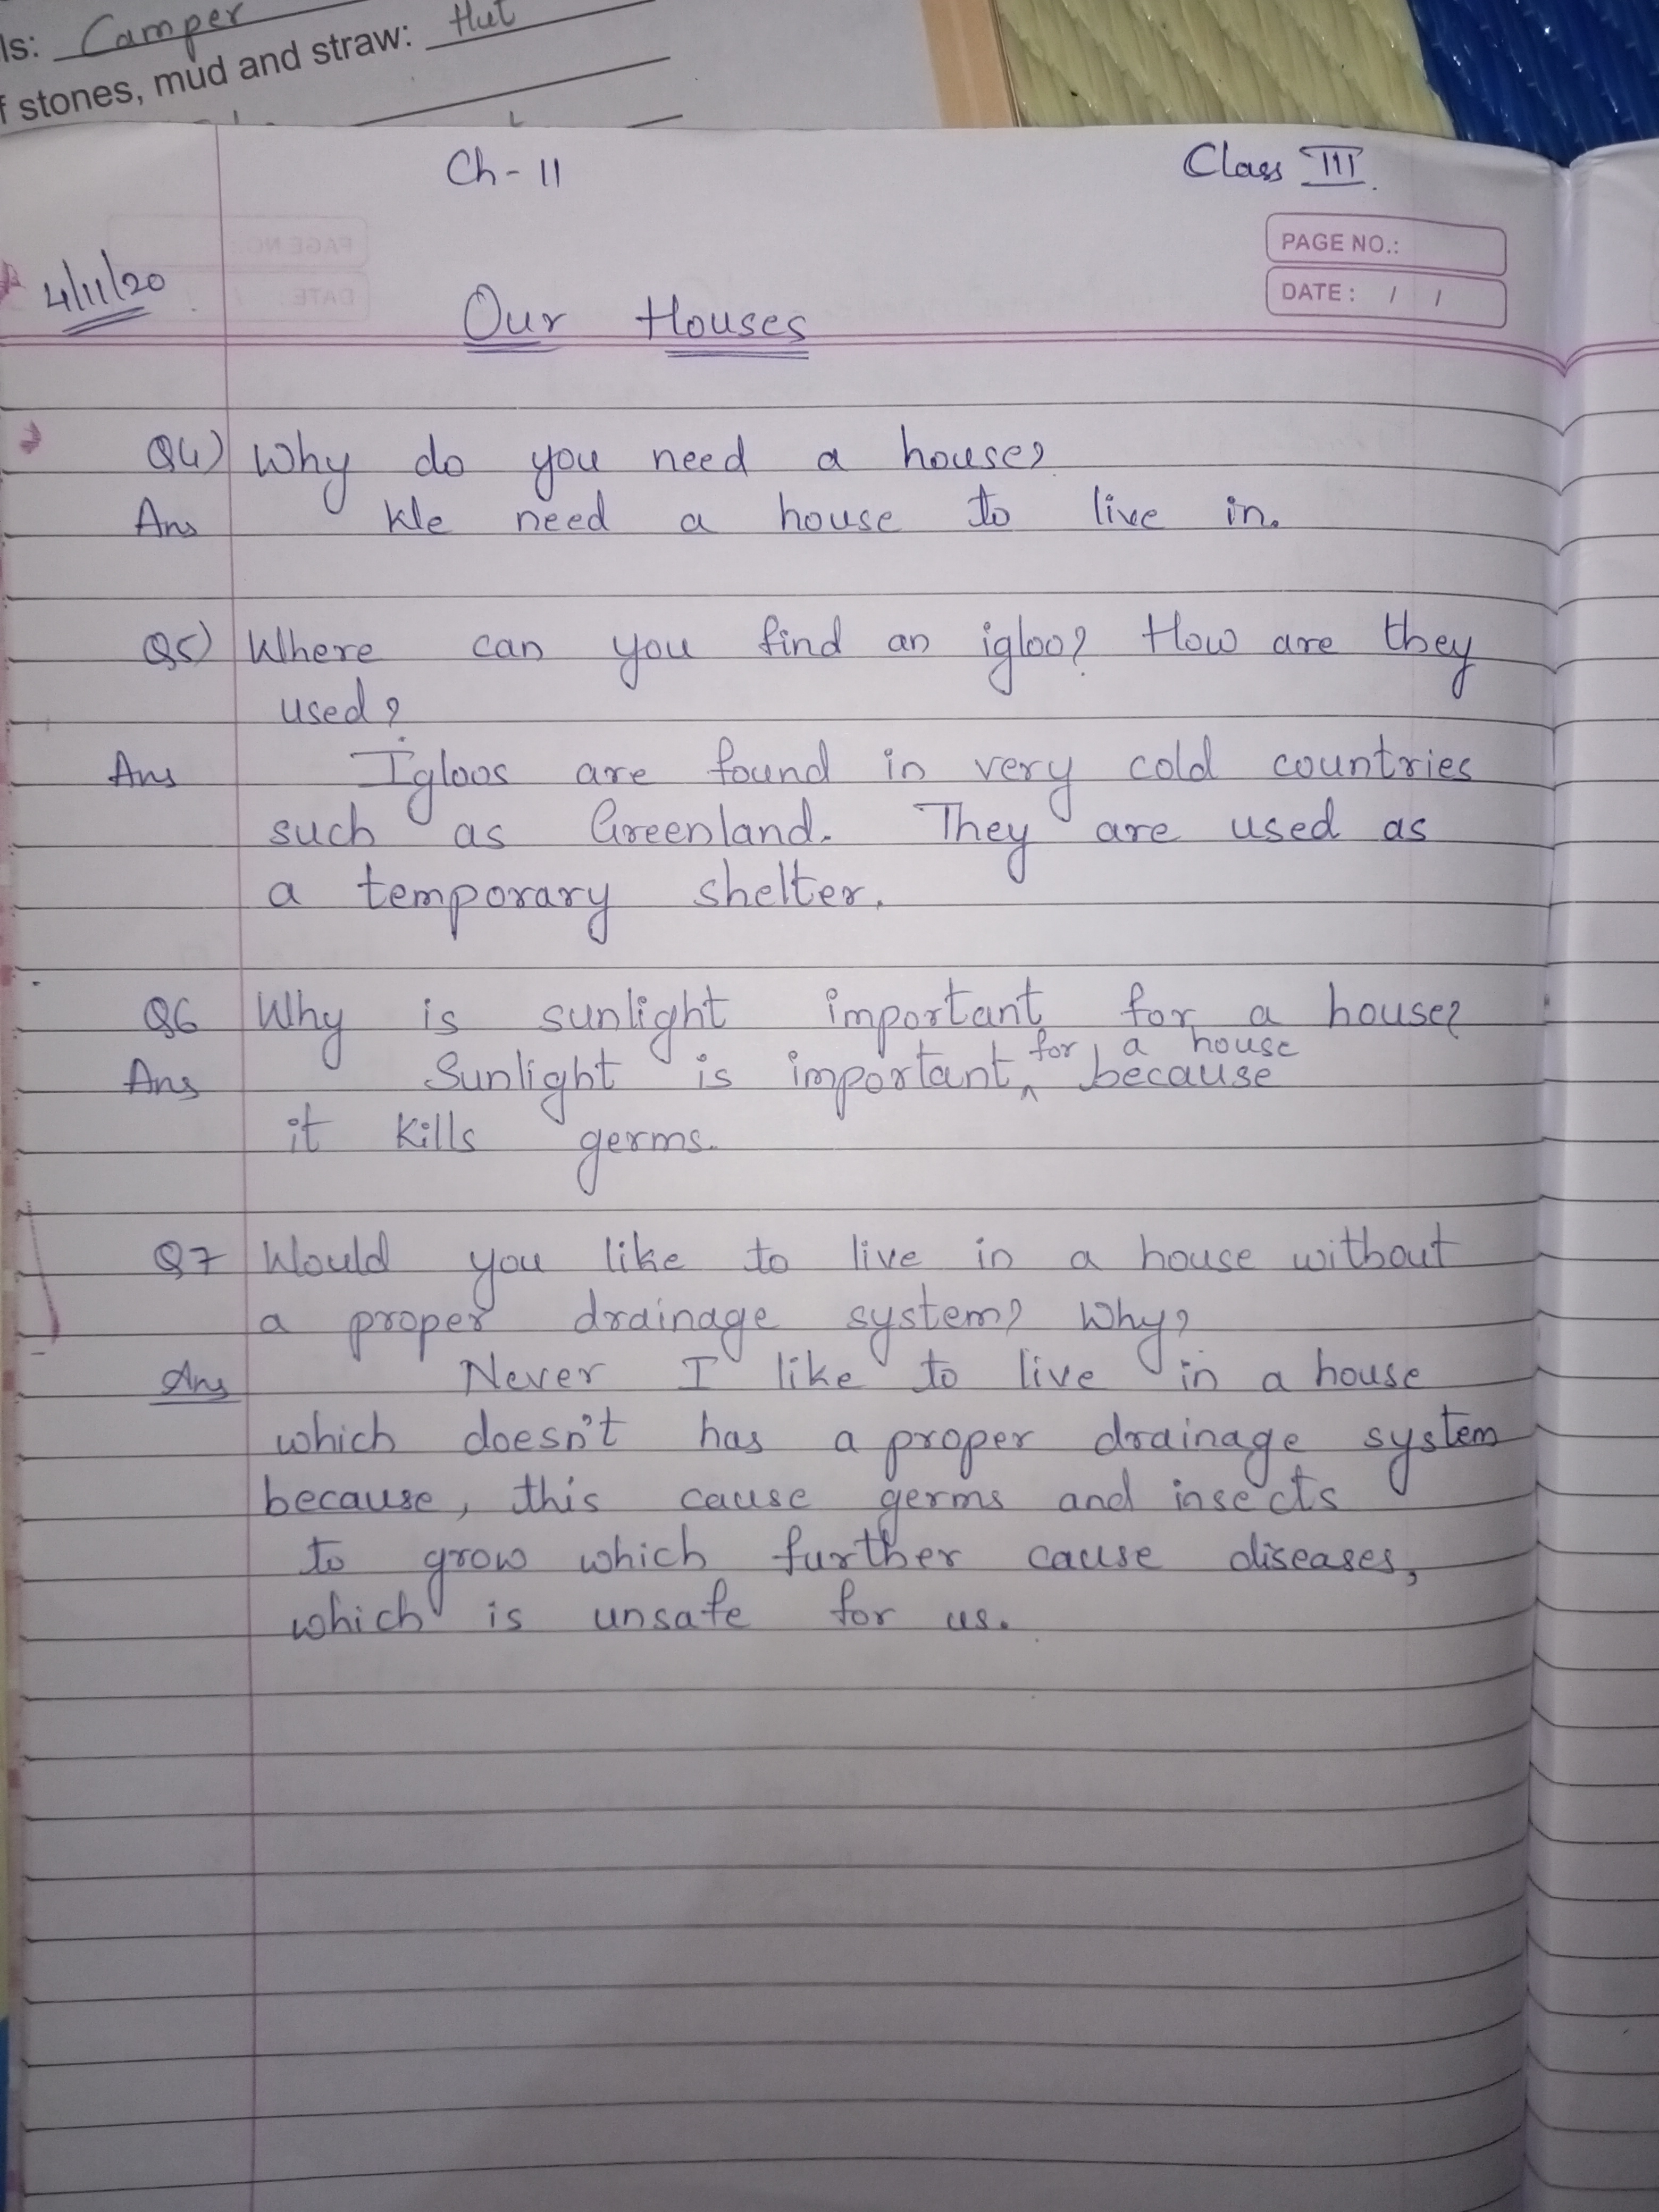 ls: Camper
f stones, mud and straw: Hut
Ch - 11
Class III.
PAGE NO.:
DATE: / /
4/11/20
Our Houses
Q4) Why do you need a house?
Ans We need a house to live in.
Q5) Where can you find an igloo? How are they
used?
Ans Igloos are found in very cold countries
such as Greenland. They are used as
a temporary shelter.
Q6 Why is sunlight important for a house?
for a house
Ans Sunlight is important ^ because
it kills germs.
Q7 Would you like to live in a house without
a proper drainage system? Why?
Ans Never I like to live in a house
which doesn't has a proper drainage system
because, this cause germs and insects
to grow which further cause diseases,
which is unsafe for us.